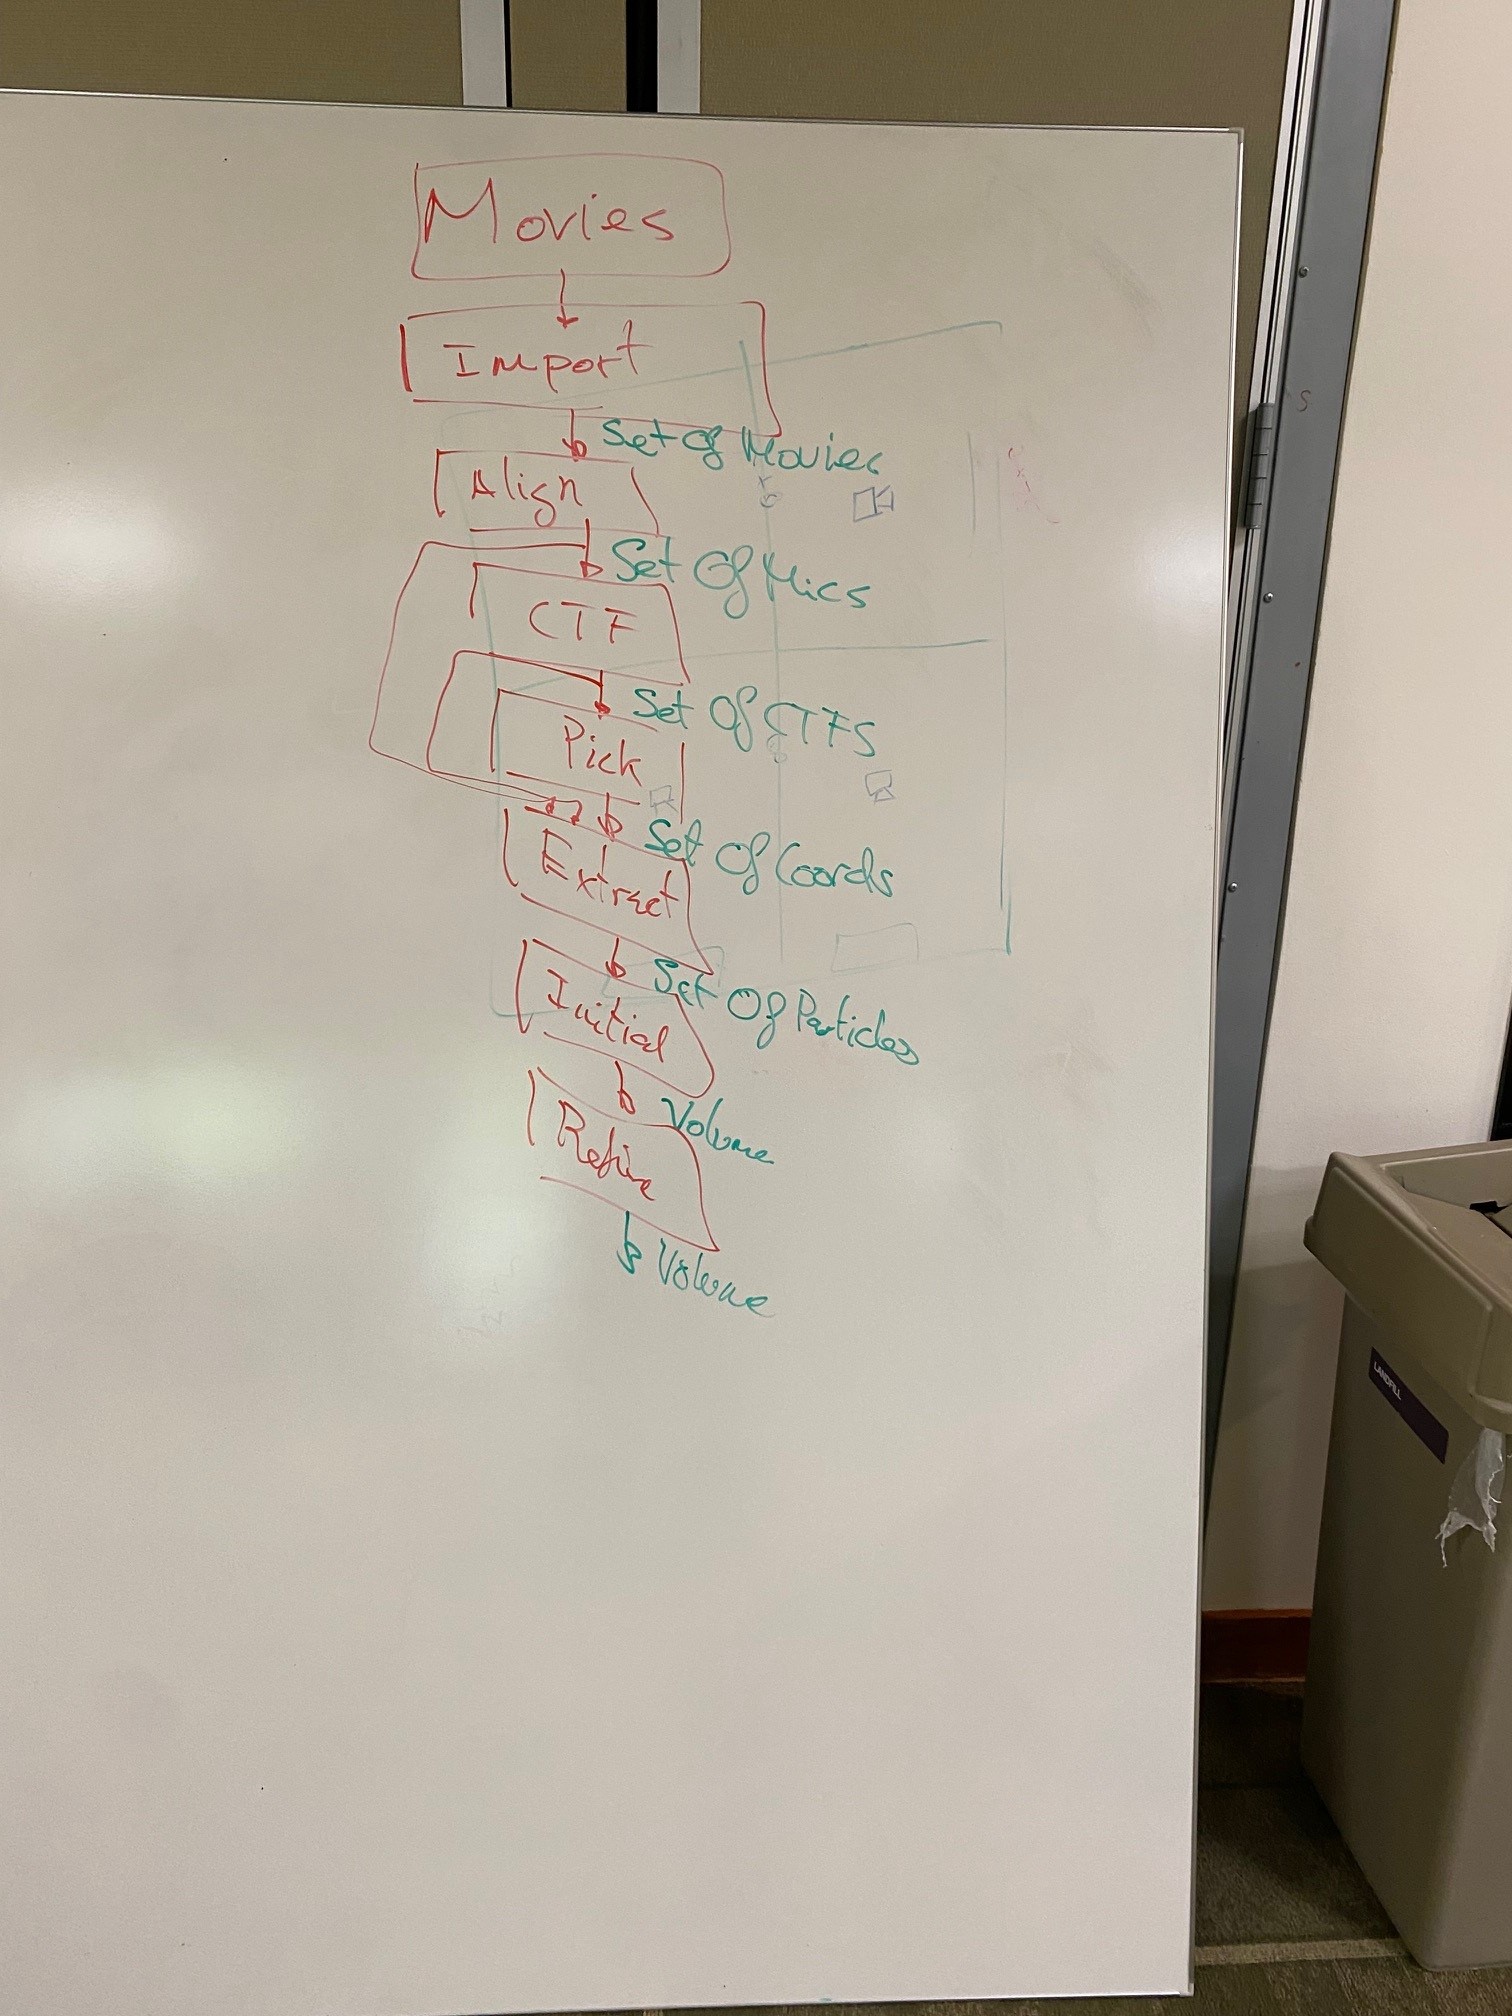 Movies
Import
Set Of Movies
Align
Set Of Mics
CTF
Set Of CTFS
Pick
Set Of Coords
Extract
Set Of Particles
Initial
Volume
Refine
Volume
LANDFILL